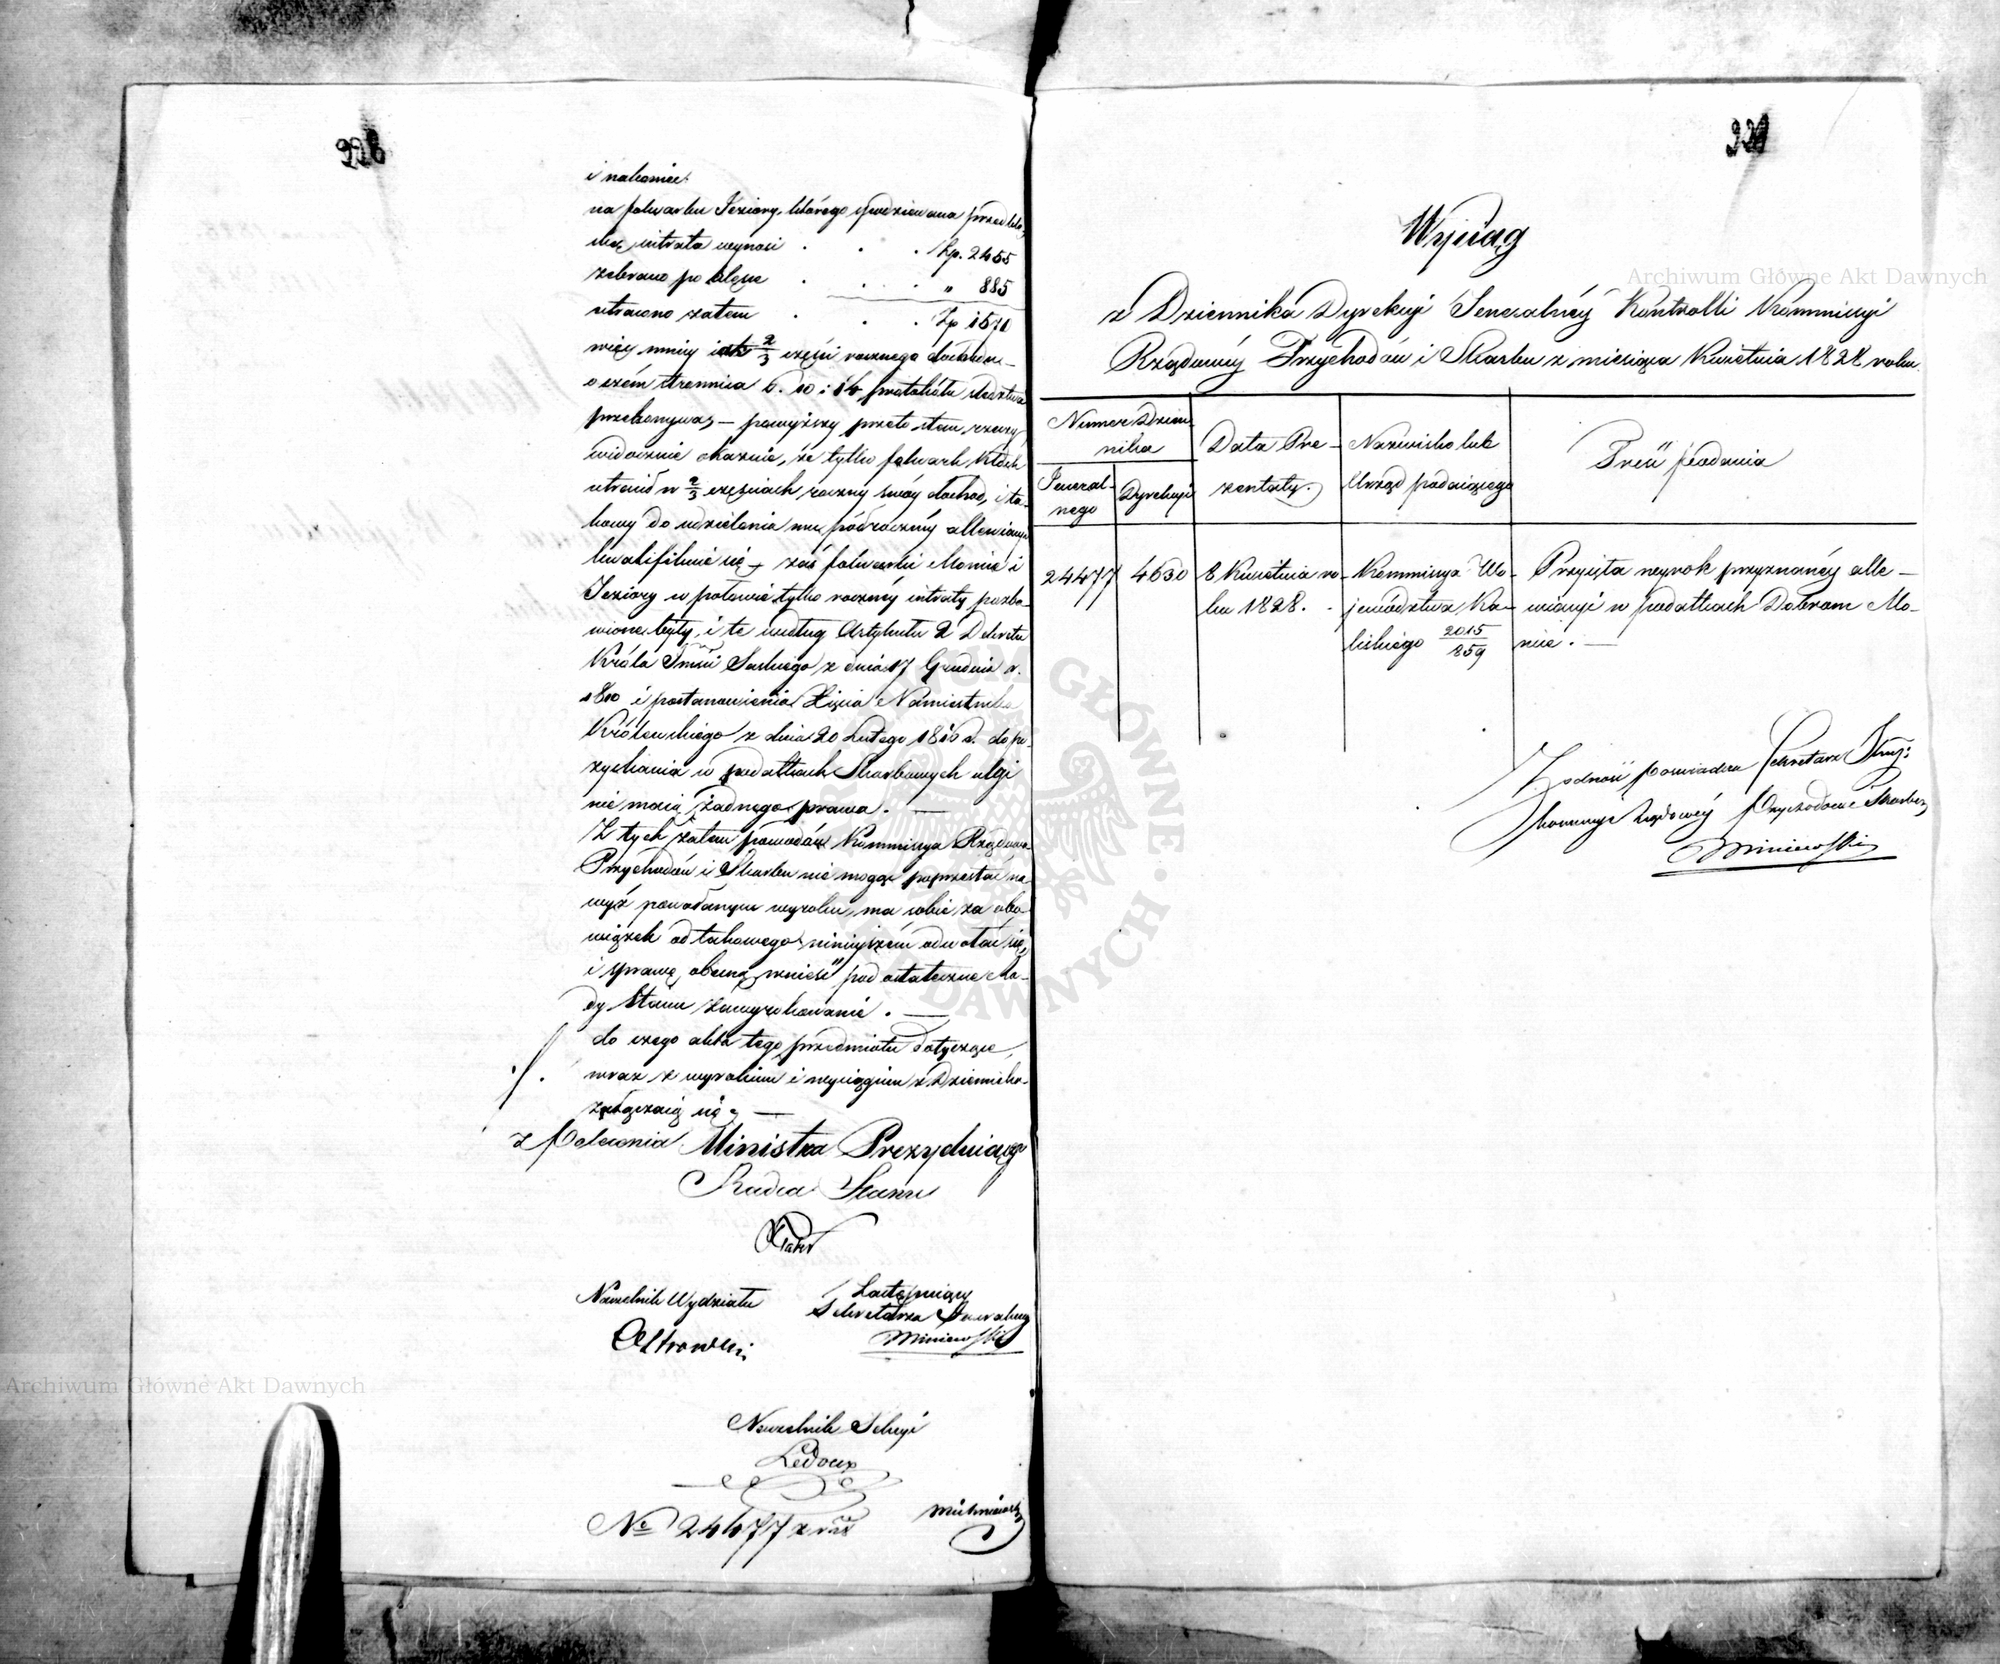 228
i nakoniec
na folwarku Jeziory, którego spodziewana przed klę-
ską intrata wynosi . . . Zp. 2455
zebrano po klęsce . . . " 885
utracono zatem . . . Zp 1570
więcy mniéy iak 2/3 części rocznego dochodu –
o czém stronnica 6. 10 i 14 protokółu śledztwa
przekonywa, – powyższy przeto stan rzeczy
widocznie okazuie, że tylko folwark
utracił w 2/3 częściach roczny swóy dochod, i ta-
kowy do udzielenia mu półroczney allewiacyi
kwalifikuie się – zaś folwarki Monice i
Jeziory w połowie tylko roczney intraty pozba-
wione były, i te według Artykułu 2 Dekretu
Króla Saskiego z dnia 17 Grudnia r.
1810 i postanowienia Xięcia Namiestnika
Królewskiego z dnia 20 Lutego 1816 r. do po-
zyskania w podatkach Skarbowych ulgi
nie maią żadnego prawa. —
Z tych zatem powodów Kommissya Rządowa
Przychodów i Skarbu nie mogąc poprzestać na
wyż powołanym wyroku, ma sobie za obo-
wiązek od takowego ninieyszém odwołać się,
i sprawę obecną wnieść pod ostateczne Ra-
dy Stanu zawyrokowanie. —
·/. do czego akta tego przedmiotu dotyczące,
wraz z wyrokiem i wyciągiem z Dziennika
załączaią się. —
z Polecenia Ministra Prezyduiącego
Radca Stanu
Naczelnik Wydziału
Zastępuiący
Sekretarza Generalnego
Ostrowski
Miniewski
Naczelnik Sekcyi
Ledoux
No 24477
229
Wyciąg
z Dziennika Dyrekcyi Generalnéy Kontrolli Kommissyi
Rządowéy Przychodów i Skarbu z miesiąca Kwietnia 1828 roku.
Numer Dzien-
nika
Data Pre-
zentaty.
Nazwisko lub
Urząd podaiącego
Treść podania
General-
nego
Dyrekcyi
24477
4630
8 Kwietnia ro-
ku 1828.
Kommissya Wo-
jewództwa Ka-
liskiego 2015/859
Przyięta wyrok przyznanéy alle-
wiacyi w podatkach Dobrom Mo-
nice. —
Zgodność poswiadcza Sekretarz Jlny:
Kommissyi Rządowéy Przychodów i Skarbu
Miniewski
Archiwum Główne Akt Dawnych
Archiwum Główne Akt Dawnych